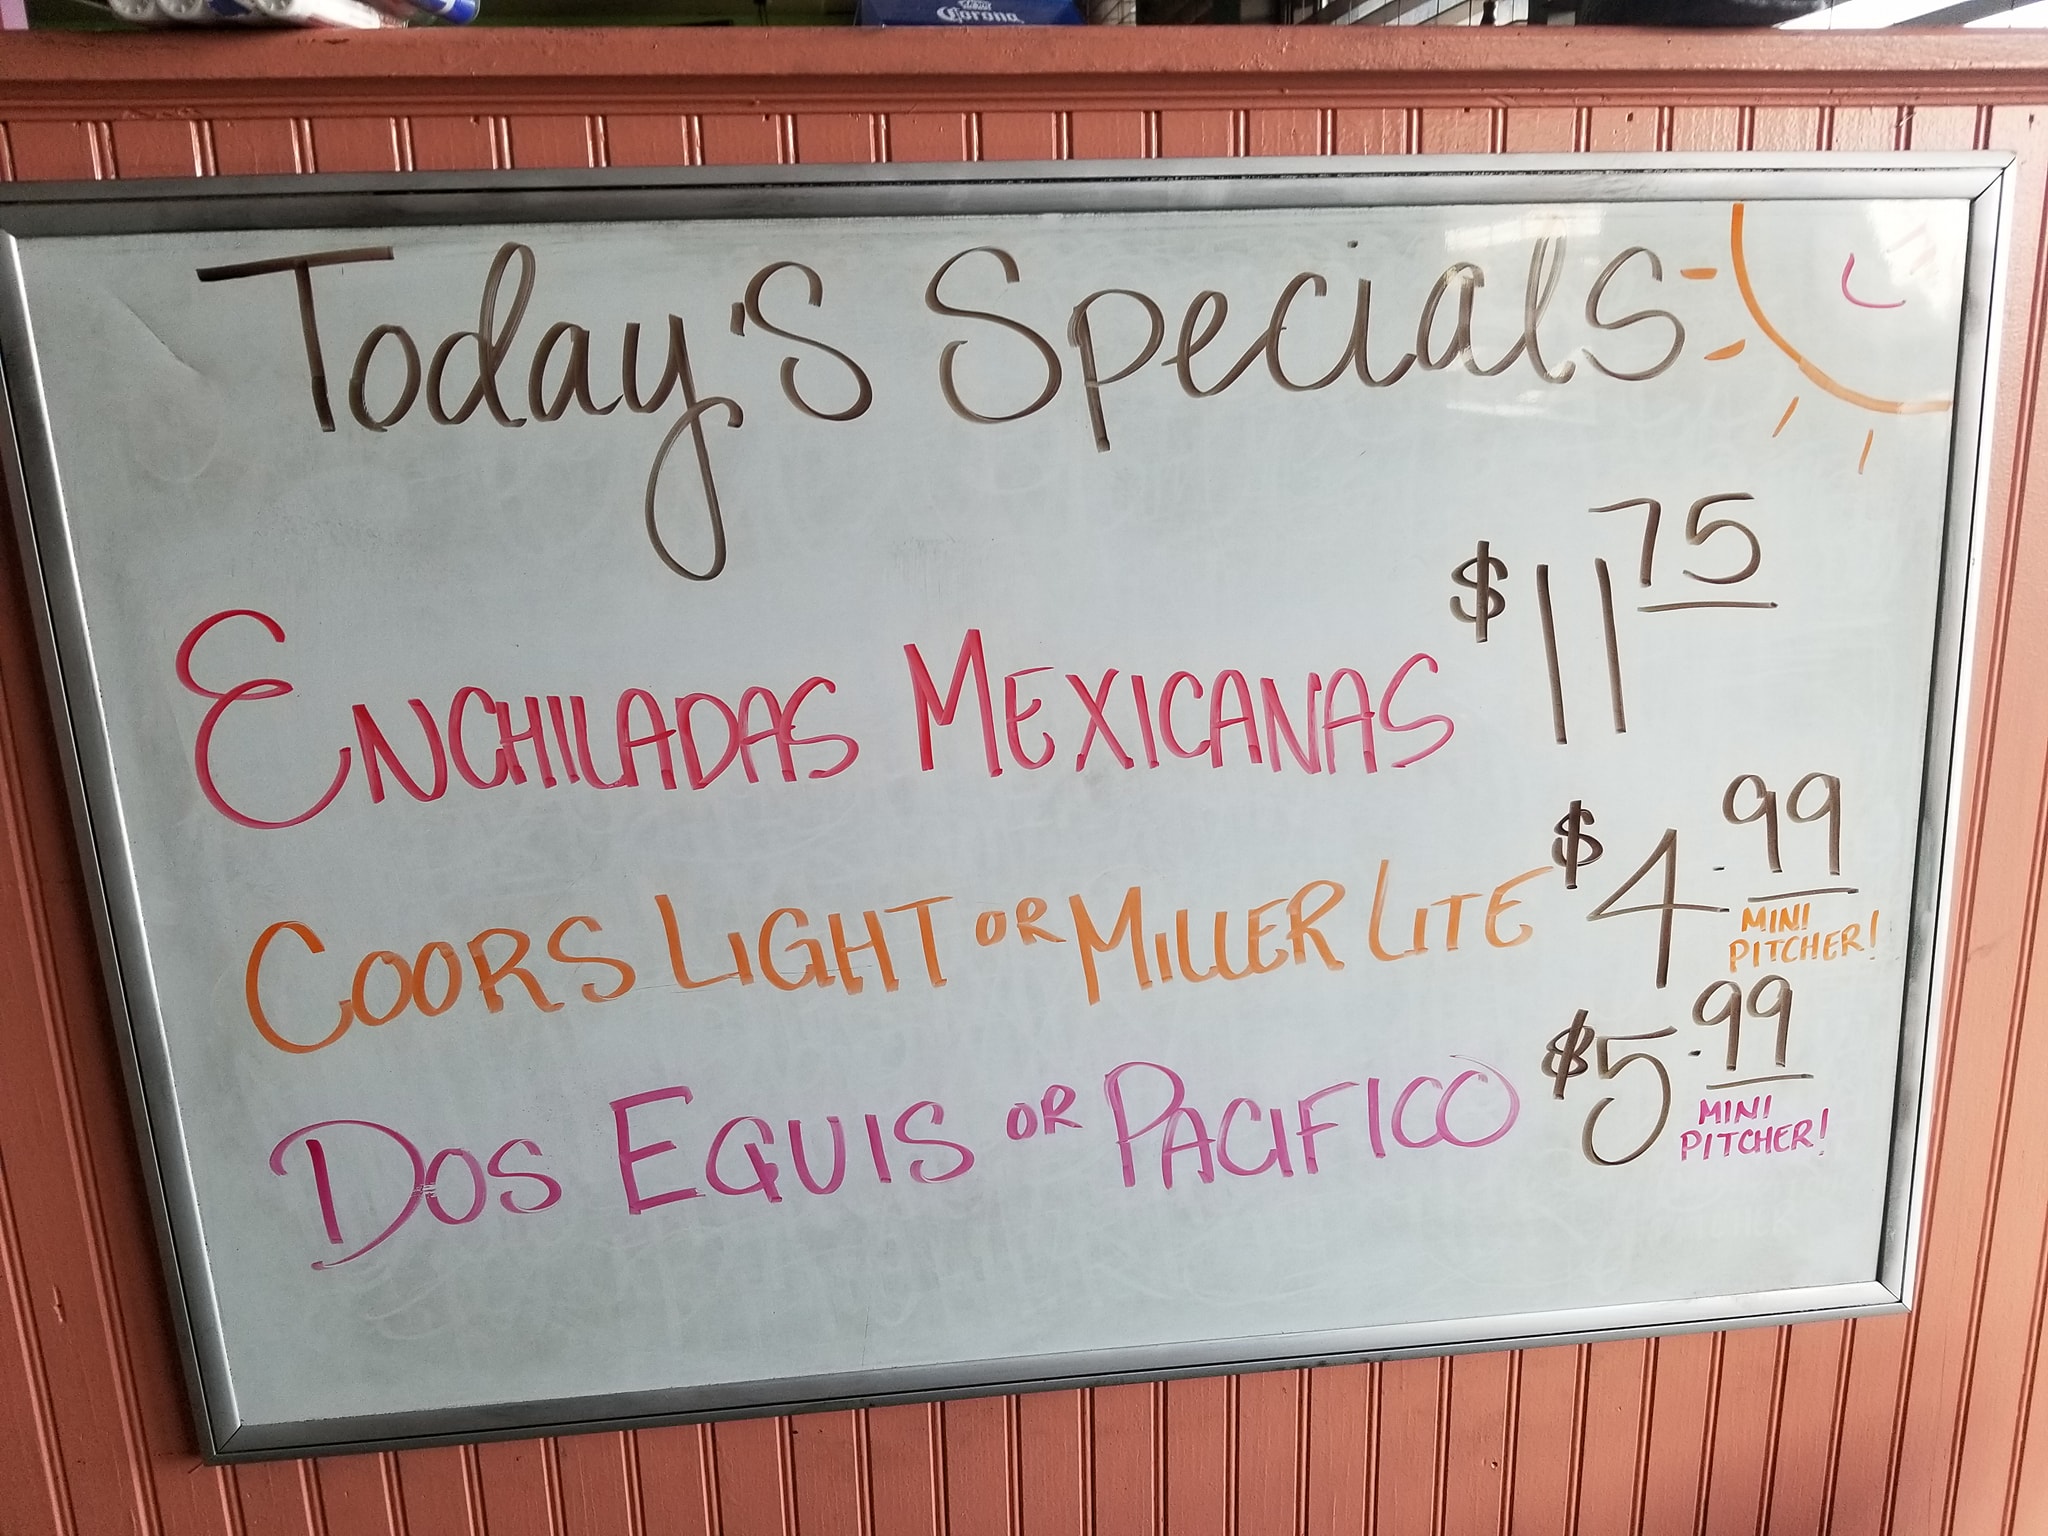 Corona
Today's Specials
ENCHILADAS MEXICANAS $11 75
COORS LIGHT OR MILLER LITE $4.99
MINI
PITCHER!
DOS EQUIS OR PACIFICO $5.99
MINI
PITCHER!